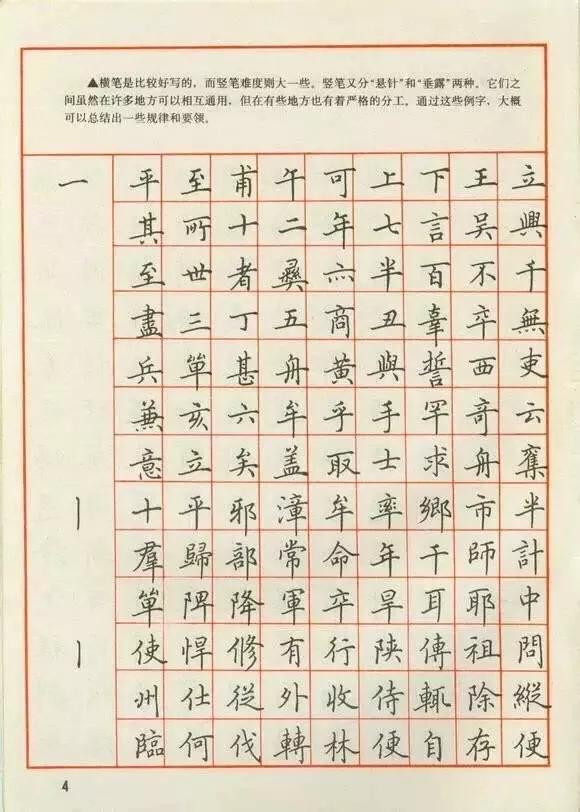 ▲横笔是比较好写的，而竖笔难度则大一些。竖笔又分“悬针”和“垂露”两种。它们之
间虽然在许多地方可以相互通用，但在有些地方也有着严格的分工。通过这些例字，大概
可以总结出一些规律和要领。
一 平 至 甫 午 可 上 下 王 立
其 所 十 二 年 七 言 吴 興
至 世 者 彞 六 半 百 不 千
盡 三 丁 五 商 丑 辜 卒 無
兵 單 甚 舟 黄 與 誓 西 吏
兼 亥 六 牟 乎 手 罕 奇 云
意 立 矣 盖 取 士 求 舟 奪
丨 十 平 邪 漳 牟 率 鄉 市 半
羣 歸 部 常 命 年 干 師 計
單 陴 降 軍 卒 旱 耳 耶 中
丨 使 悍 修 有 行 陝 傳 祖 問
州 仕 從 外 收 侍 輒 除 縱
臨 何 伐 轉 林 便 自 存 便
4